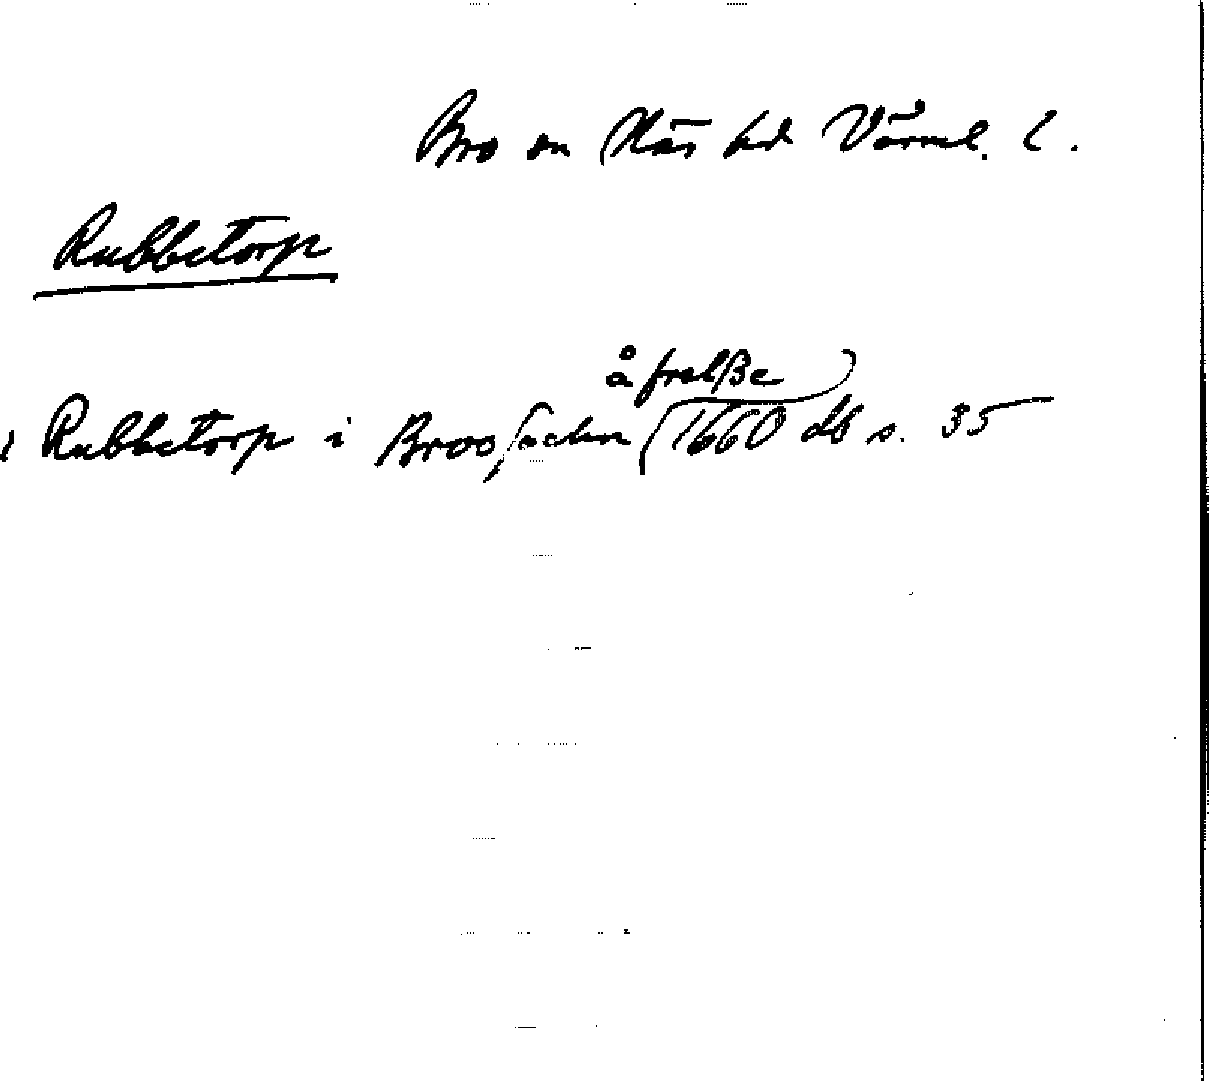 Bro sn Näs hd Värml. l.
Rubbetorp
å frelße
Rubbetorp i Broosochn 1660 db s. 35